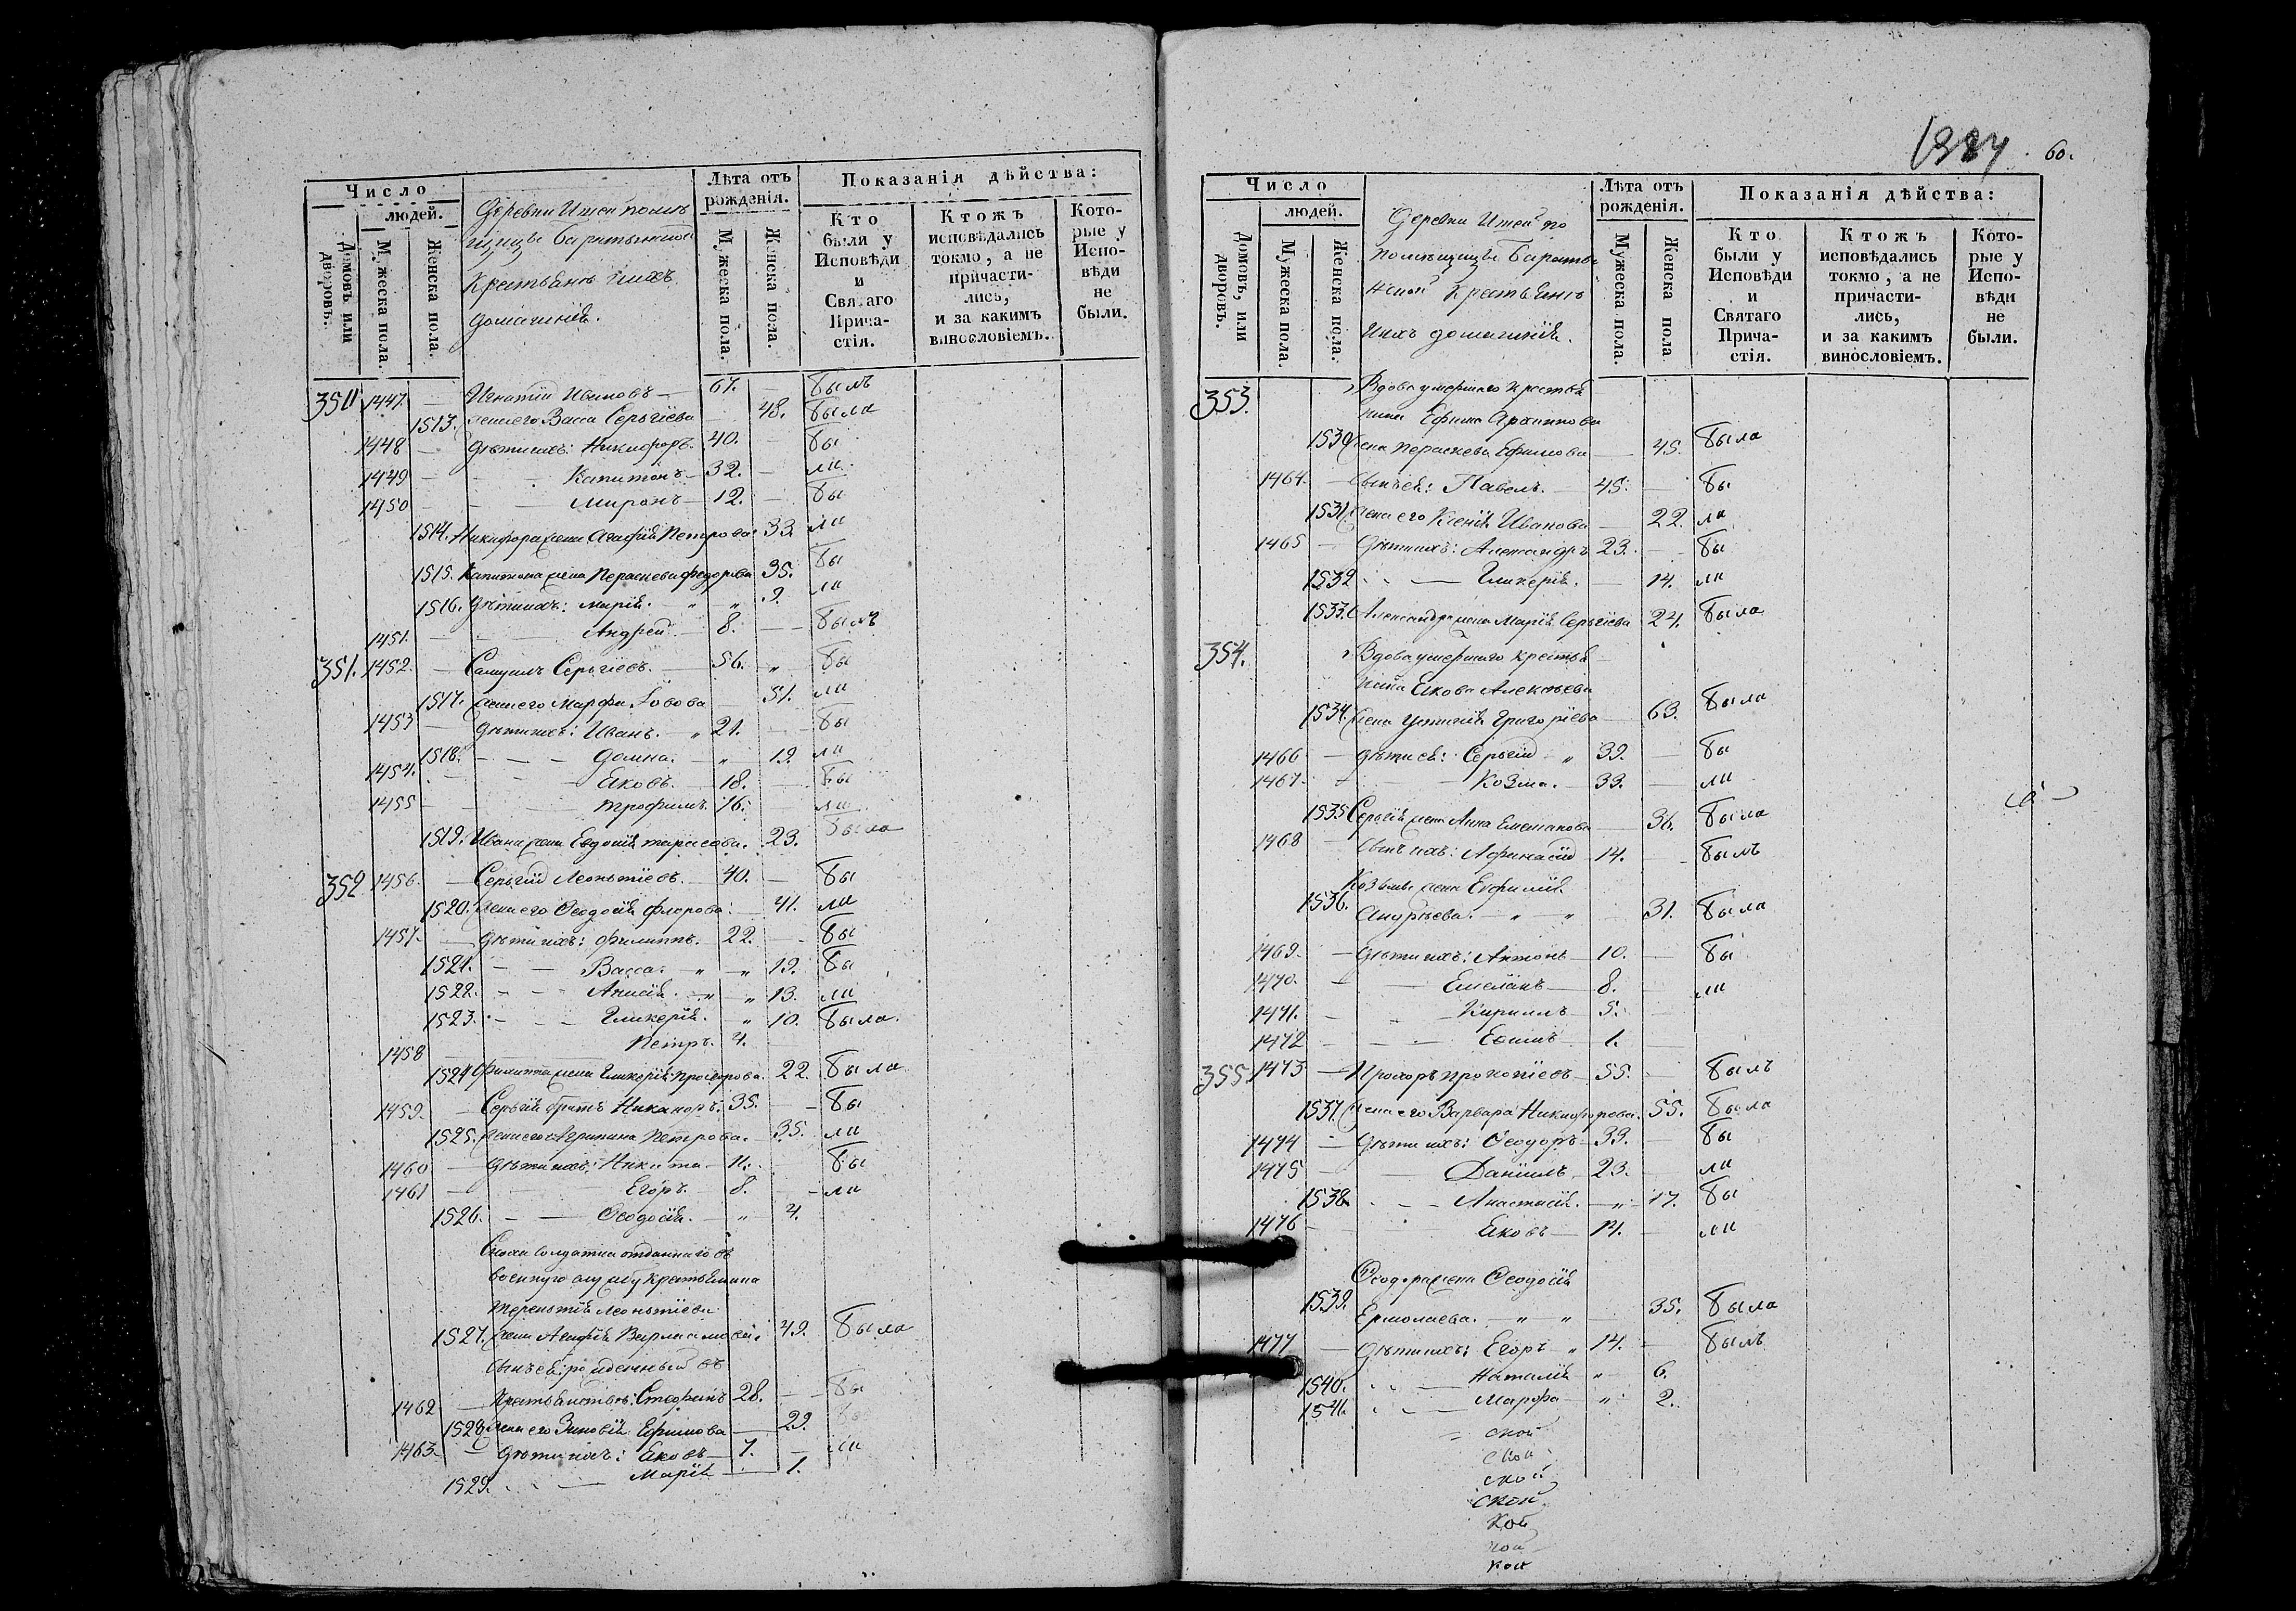 Число
людей.
Домовъ или дворовъ.
Мужеска пола.
Женска пола.
Деревни
крестьянъ ихъ
домашнія.
Лѣта отъ рожденія.
Мужеска пола.
Женска пола.
Показанія дѣйства:
Кто были у Исповѣди и Святаго Прича-стія.
Ктожъ исповѣдались токмо, а не причасти-лись, и за какимъ винословіемъ.
Кото-рые у Испо-вѣди не были.
350 1447. Игнатій Ивановъ 67. былъ
1513. жена его Васса Сергіева 48. была
1448 дѣти ихъ: Никифоръ. 40. бы
1449 Капитонъ 32. ли
1450 Миронъ 12. бы
1514. Никифора жена Агафія Петрова 33 ли
1515. Капитона жена Параскева Федорова 35. бы
1516. дѣти ихъ: Марія. 9. ли
1451. Андрей 8. былъ
351. 1452. Самуилъ Сергіевъ. 56. бы
1517. жена его Марфа 51. ли
1453 дѣти ихъ: Иванъ. 21. бы
1518. Домна. 19. ли
1454. Яковъ. 18. бы
1455 Трофимъ 16. ли
1519. Ивана жена Евдокія Тарасова. 23. была
352 1456. Сергій Леонтіевъ. 40. бы
1520. жена его Ѳеодосія Флорова. 41. ли
1457. дѣти ихъ: Филиппъ. 22. бы
1521. Васса. 19. бы
1522. Анисія. 13. ли
1523. Гликерія. 10. была.
1458 Петръ. 4.
1524 Филиппа жена Гликерія 22. была
1459. Сергія братъ Никаноръ. 35. бы
1525. жена его Агрипина Петрова. 35. ли
1460 дѣти ихъ: Никита 11. бы
1461 Егоръ. 8. ли
1526. Ѳеодосія. 4.
солдатка отданнаго въ
военную службу крестьянина
Терентія Леонтіева
1527. жена Агафія Варламова 49. была
сынъ ея рожденный въ
1462 крестьянствѣ: Стефанъ 28. бы
1528 жена его Зиновія Ефимова 29.
1463. дѣти ихъ: Яковъ 7. ли
1529. Марія 1.
60.
Число
людей.
Домовъ, или дворовъ.
Мужеска пола
Женска пола.
Деревни
помѣщицы
крестьянъ
ихъ домашнія.
Лѣта отъ рожденія.
Мужеска пола.
Женска пола
Показанія дѣйства:
Кто были у Исповѣди и Святаго Прича-стія.
Ктожъ исповѣдались токмо, а не причасти-лись, и за какимъ винословіемъ.
Кото-рые у Испо-вѣди не были.
353. Вдова умершаго крестья
нина Ефима Архипова
1530 жена Параскева Ефимова 45. была
1464. сынъ ея: Павелъ. 45. бы
1531. жена его Ксенія Иванова 22. ли
1465 дѣти ихъ: Александръ 23. бы
1532 Гликерія. 14. ли
1533. Александра жена Марія Сергіева 24. была
354. Вдова умершаго крестья
нина Якова Алексѣева
1534. жена Григоріева 63. была
1466 дѣти ея: Сергій 39. бы
1467. Козма. 33. ли
1535 Сергія жена Анна Емелианова 36. была
1468 сынъ ихъ: Афанасій 14. былъ
Козьмы жена Евфимія
1536. Андрѣева. 31. была
1469. дѣти ихъ: Антонъ 10. бы
1470. Емеліанъ 8. ли
1471. Кириллъ 5.
1472 1.
355. 1473 Прохоръ Прокопіевъ 55. былъ
1537. жена его Варвара Никифорова. 55. была
1474 дѣти ихъ: Ѳеодоръ 33. бы
1475 Даніилъ 23. ли
1538. Анастасія. 17. бы
1476 Яковъ 14. ли
Ѳеодора жена Ѳеодосія
1539. Ермолаева. 35. была
1477 дѣти ихъ: Егоръ 14. былъ
1540. Наталія 6.
1541. Марфа 2.
ской
ской
ской
ской
кой
кой
кой